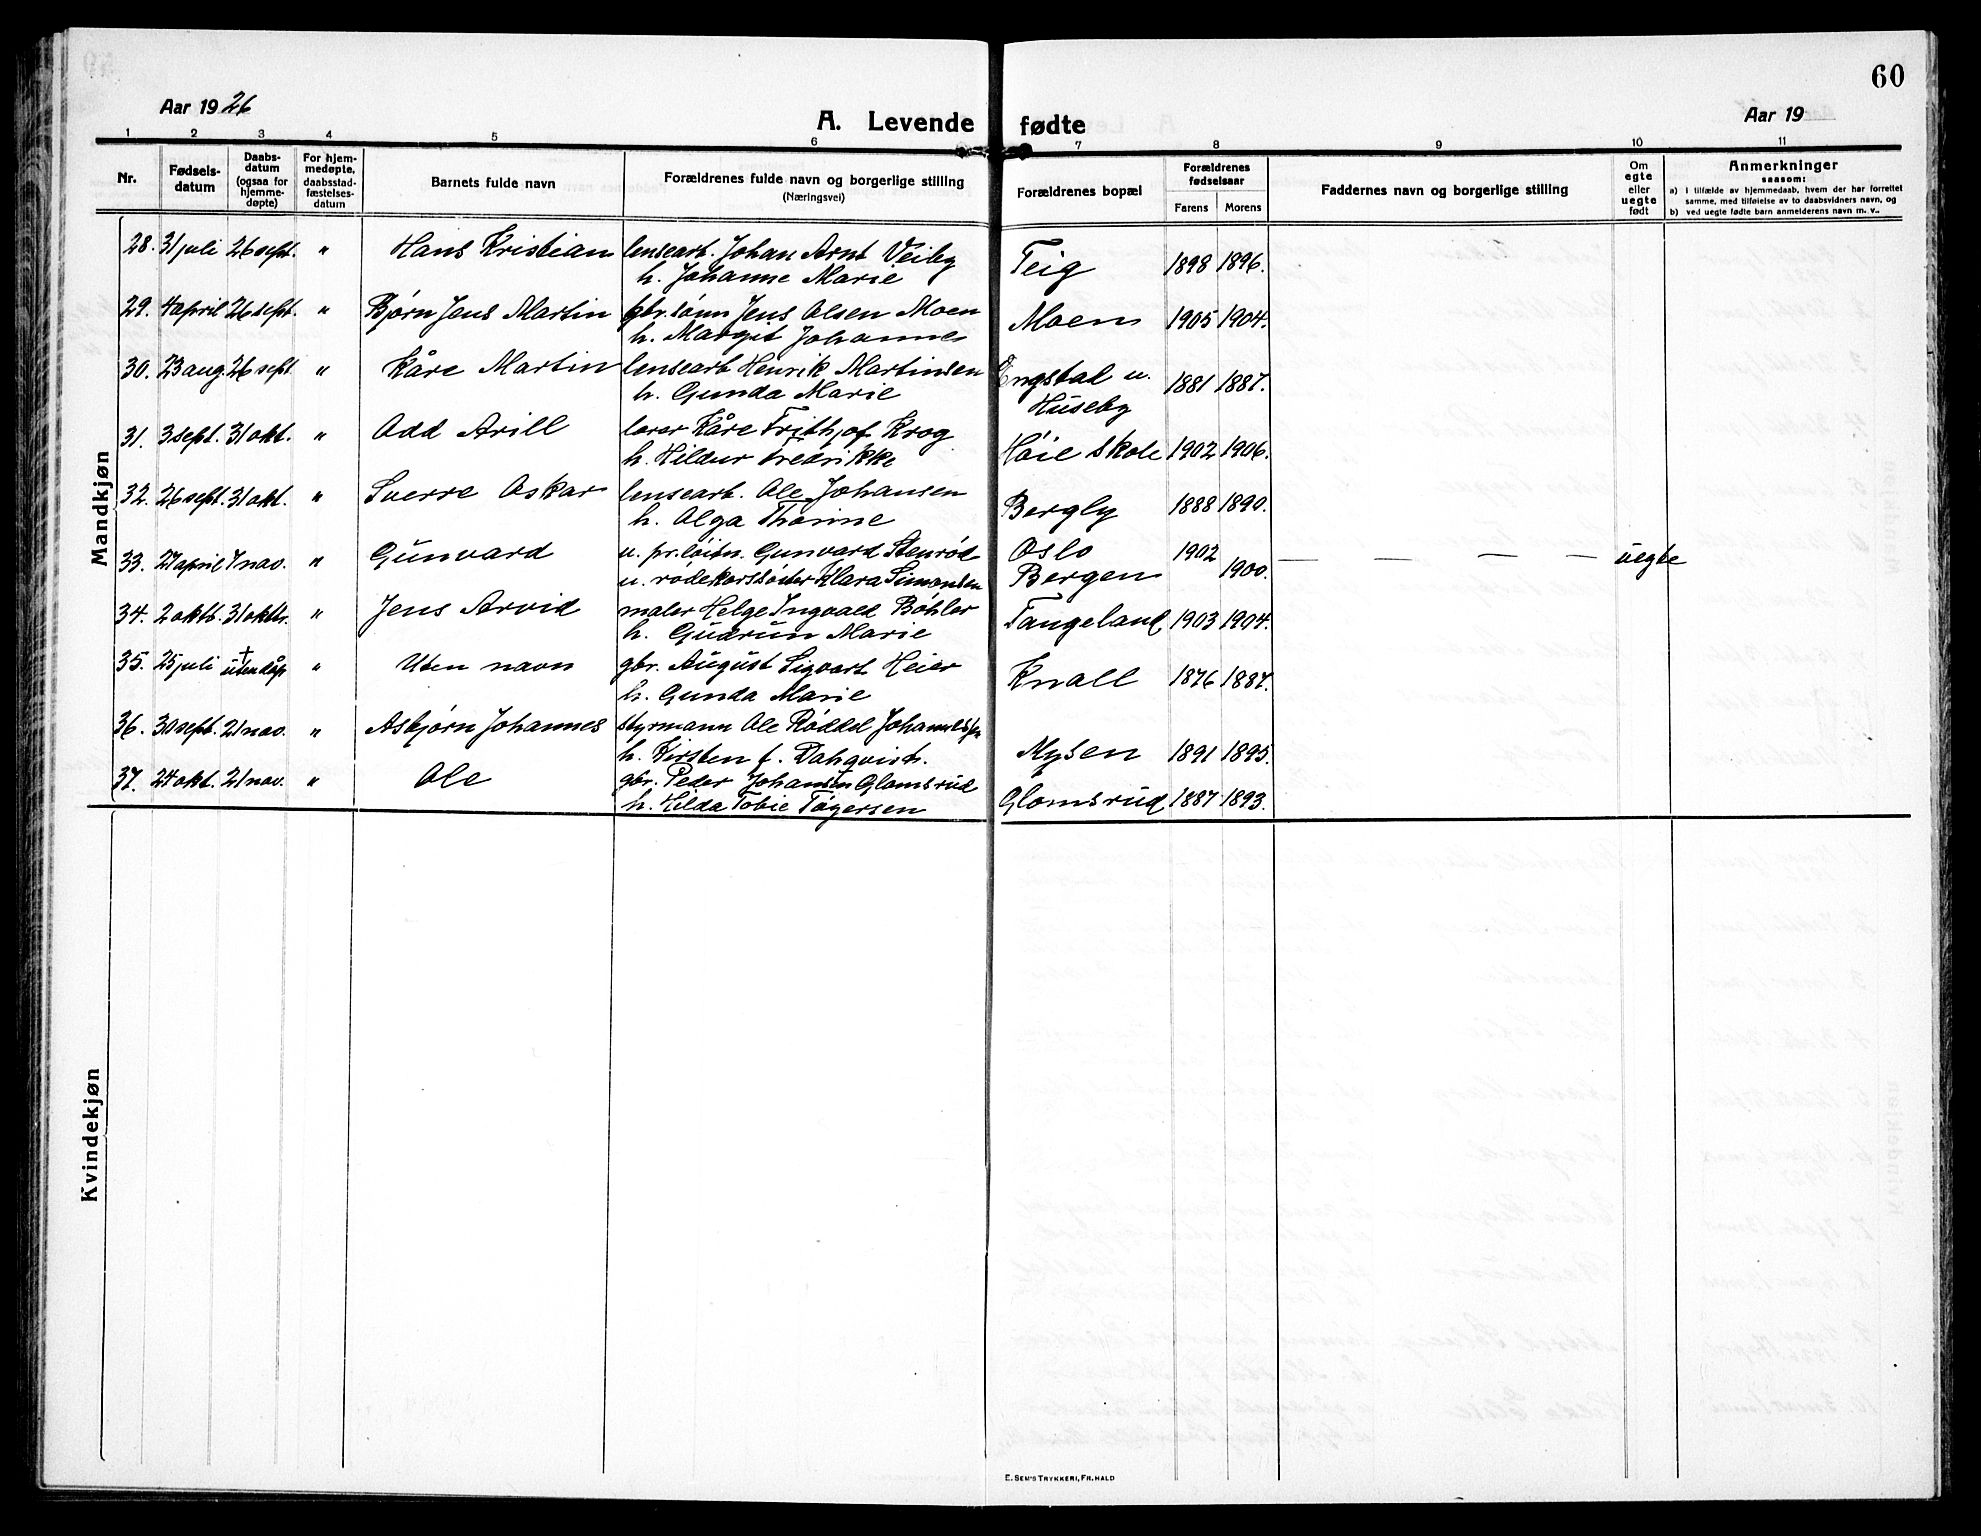 60
Aar 1926
A. Levende fødte
Aar 19
1 2 3 4 5 6 7 8 9 10 11
Nr.
Fødsels-
datum
Daabs-
datum
(ogsaa for
hjemme-
døpte)
For hjem-
medøpte,
daabsstad-
fæstelses-
datum
Barnets fulde navn
Forældrenes fulde navn og borgerlige stilling
(Næringsvei)
Forældrenes bopæl
Forældrenes
fødselsaar
Farens Morens
Faddernes navn og borgerlige stilling
Om
egte
eller
uegte
født
Anmerkninger
saasom:
a) i tilfælde av hjemmedaab, hvem der har forrettet
samme, med tilføielse av to daabsvidners navn, og
b) ved uegte fødte barn anmelderens navn m. v..
Mandkjøn
28. 31 juli 26 sept. " Hans Kristian lensearb. Johan Arnt Veiby Teig 1898 1896.
h. Johanne Marie
29. 4 april 26 sept. " Bjørn Jens Martin gbr.sønn Jens Olsen Moen Moen 1905 1904.
h. Margit Johannes
30. 23 aug. 26 sept. " Kåre Martin lensearb Henrik Martinsen Engstad u. 1881 1887.
h. Gunda Marie Huseby
31. 3 sept. 31 okt. " Odd Arill lærer Kåre Frithjof Krog Høie skole 1902 1906.
h. Hildur Fredrikke
32. 26 sept. 31 okt. " Sverre Oskar lensearb. Ole Johansen Bergly 1888 1890.
h. Olga Thorine
33. 21 april 7 nov. " Gunvard u. pr.løitn. Gunvard Stenrød Oslo 1902 — — — — uegte
u. rødekorssøster Klara Simonsen Bergen 1900.
34. 2 oktb. 31 oktbr. " Jens Arvid maler Helge Ingvald Bøhler Tangeland 1903 1904.
h. Gudrun Marie
35. 25 juli † uten dåp " Uten navn gbr. August Sigvart Heier Knall 1876 1887.
h. Gunda Marie
36. 30 sept. 21 nov. " Asbjørn Johannes styrmann Ole Røddel Johannessen Mysen 1891 1895.
h. Kirsten f. Dahqvist.
37. 24 okt. 21 nov. " Ole gbr. Peder Johansen Glomsrud Glomsrud 1887 1893.
h. Hilda Tobie Tøgersen
Kvindekjøn
E. Sem's Trykkeri, Fr.hald